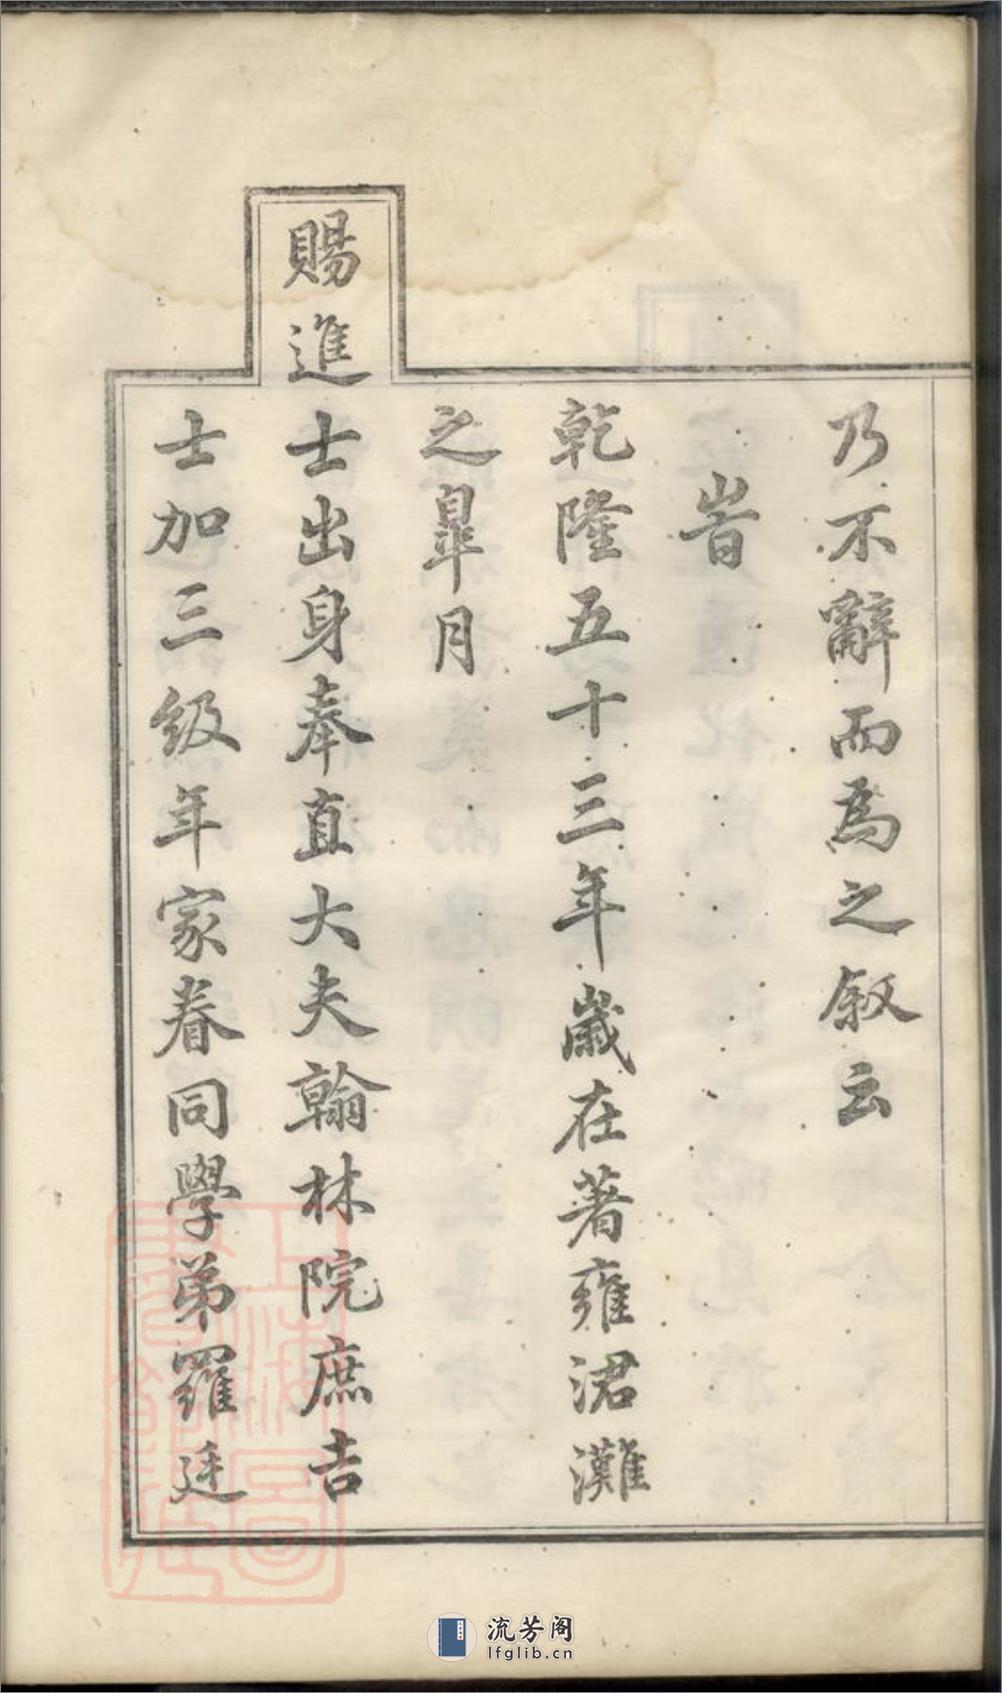 乃不辭而爲之叙云
旹
乾隆五十三年歲在著雍涒灘
之臯月
賜進士出身奉直大夫翰林院庶吉
士加三級年家眷同學弟羅廷
上海圖書館藏
流芳阁
lfglib.cn